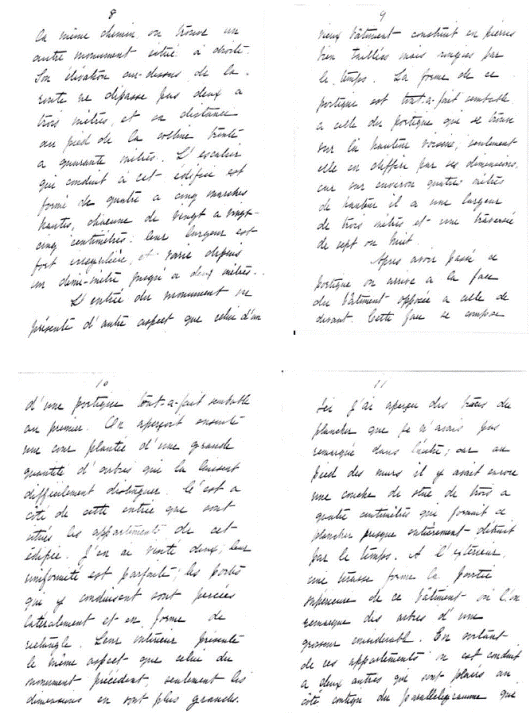 8
la même chemin on trouve un
autre monument situé à droite.
Son élévation au-dessus de la
route ne dépasse pas deux a
trois mètres, et sa distance
au pied de la colline trente
a quarante mètres. L'escalier
qui conduit à cet édifice est
formé de quatre a cinq marches
hautes, chacune de vingt a vingt-
cinq centimètres. leur largeur est
fort irregulière, et varie depuis
un demi-mètre jusqu'a deux mètres.
L'entrée du monument ne
présente d'autre aspect que celui d'un
9
vieux bâtiment construit en pierres
bien taillées mais rongées par
le temps. La forme de ce
portique est tout-a-fait semblable
a celle du portique que se trouve
sur la hauteur voisine, seulement
elle en diffère par ses dimensions,
car sur environ quatre mètres
de hauteur il a une largeur
de trois mètres et une traversée
de sept ou huit.
Apres avoir passé ce
portique on arrive a la face
du bâtiment opposée a celle de
devant. Cette face se compose
10
d'une portique tout-a-fait semblable
au premier. On aperçoit ensuite
une cour plantée d'une grande
quantité d'arbres que la laissent
difficilement distinguer. C'est a
côté de cette entrée que sont
situés les appartements de cet
édifice. J'en ai visité deux; leur
uniformité est parfaite; les portes
qui y conduisent sont percées
latéralement et en forme de
rectangle. Leur intérieur présente
le même aspect que celui du
monument précédent, seulement les
dimensions en sont plus grandes.
11
Ici j'ai aperçu des traces du
plancher que je n'avais pas
remarqué dans l'autre; car au
pied des murs il y avait encore
une couche de stuc de trois a
quatre centimètres qui formait ce
plancher presque entièrement détruit
par le temps. A l'extérieur,
une terrasse forme la partie
supérieure de ce bâtiment où l'on
remarque des arbres d'une
grosseur considerable. En sortant
de ces appartements on est conduit
a deux autres que sont placés au
côté contigu du parallelogramme que